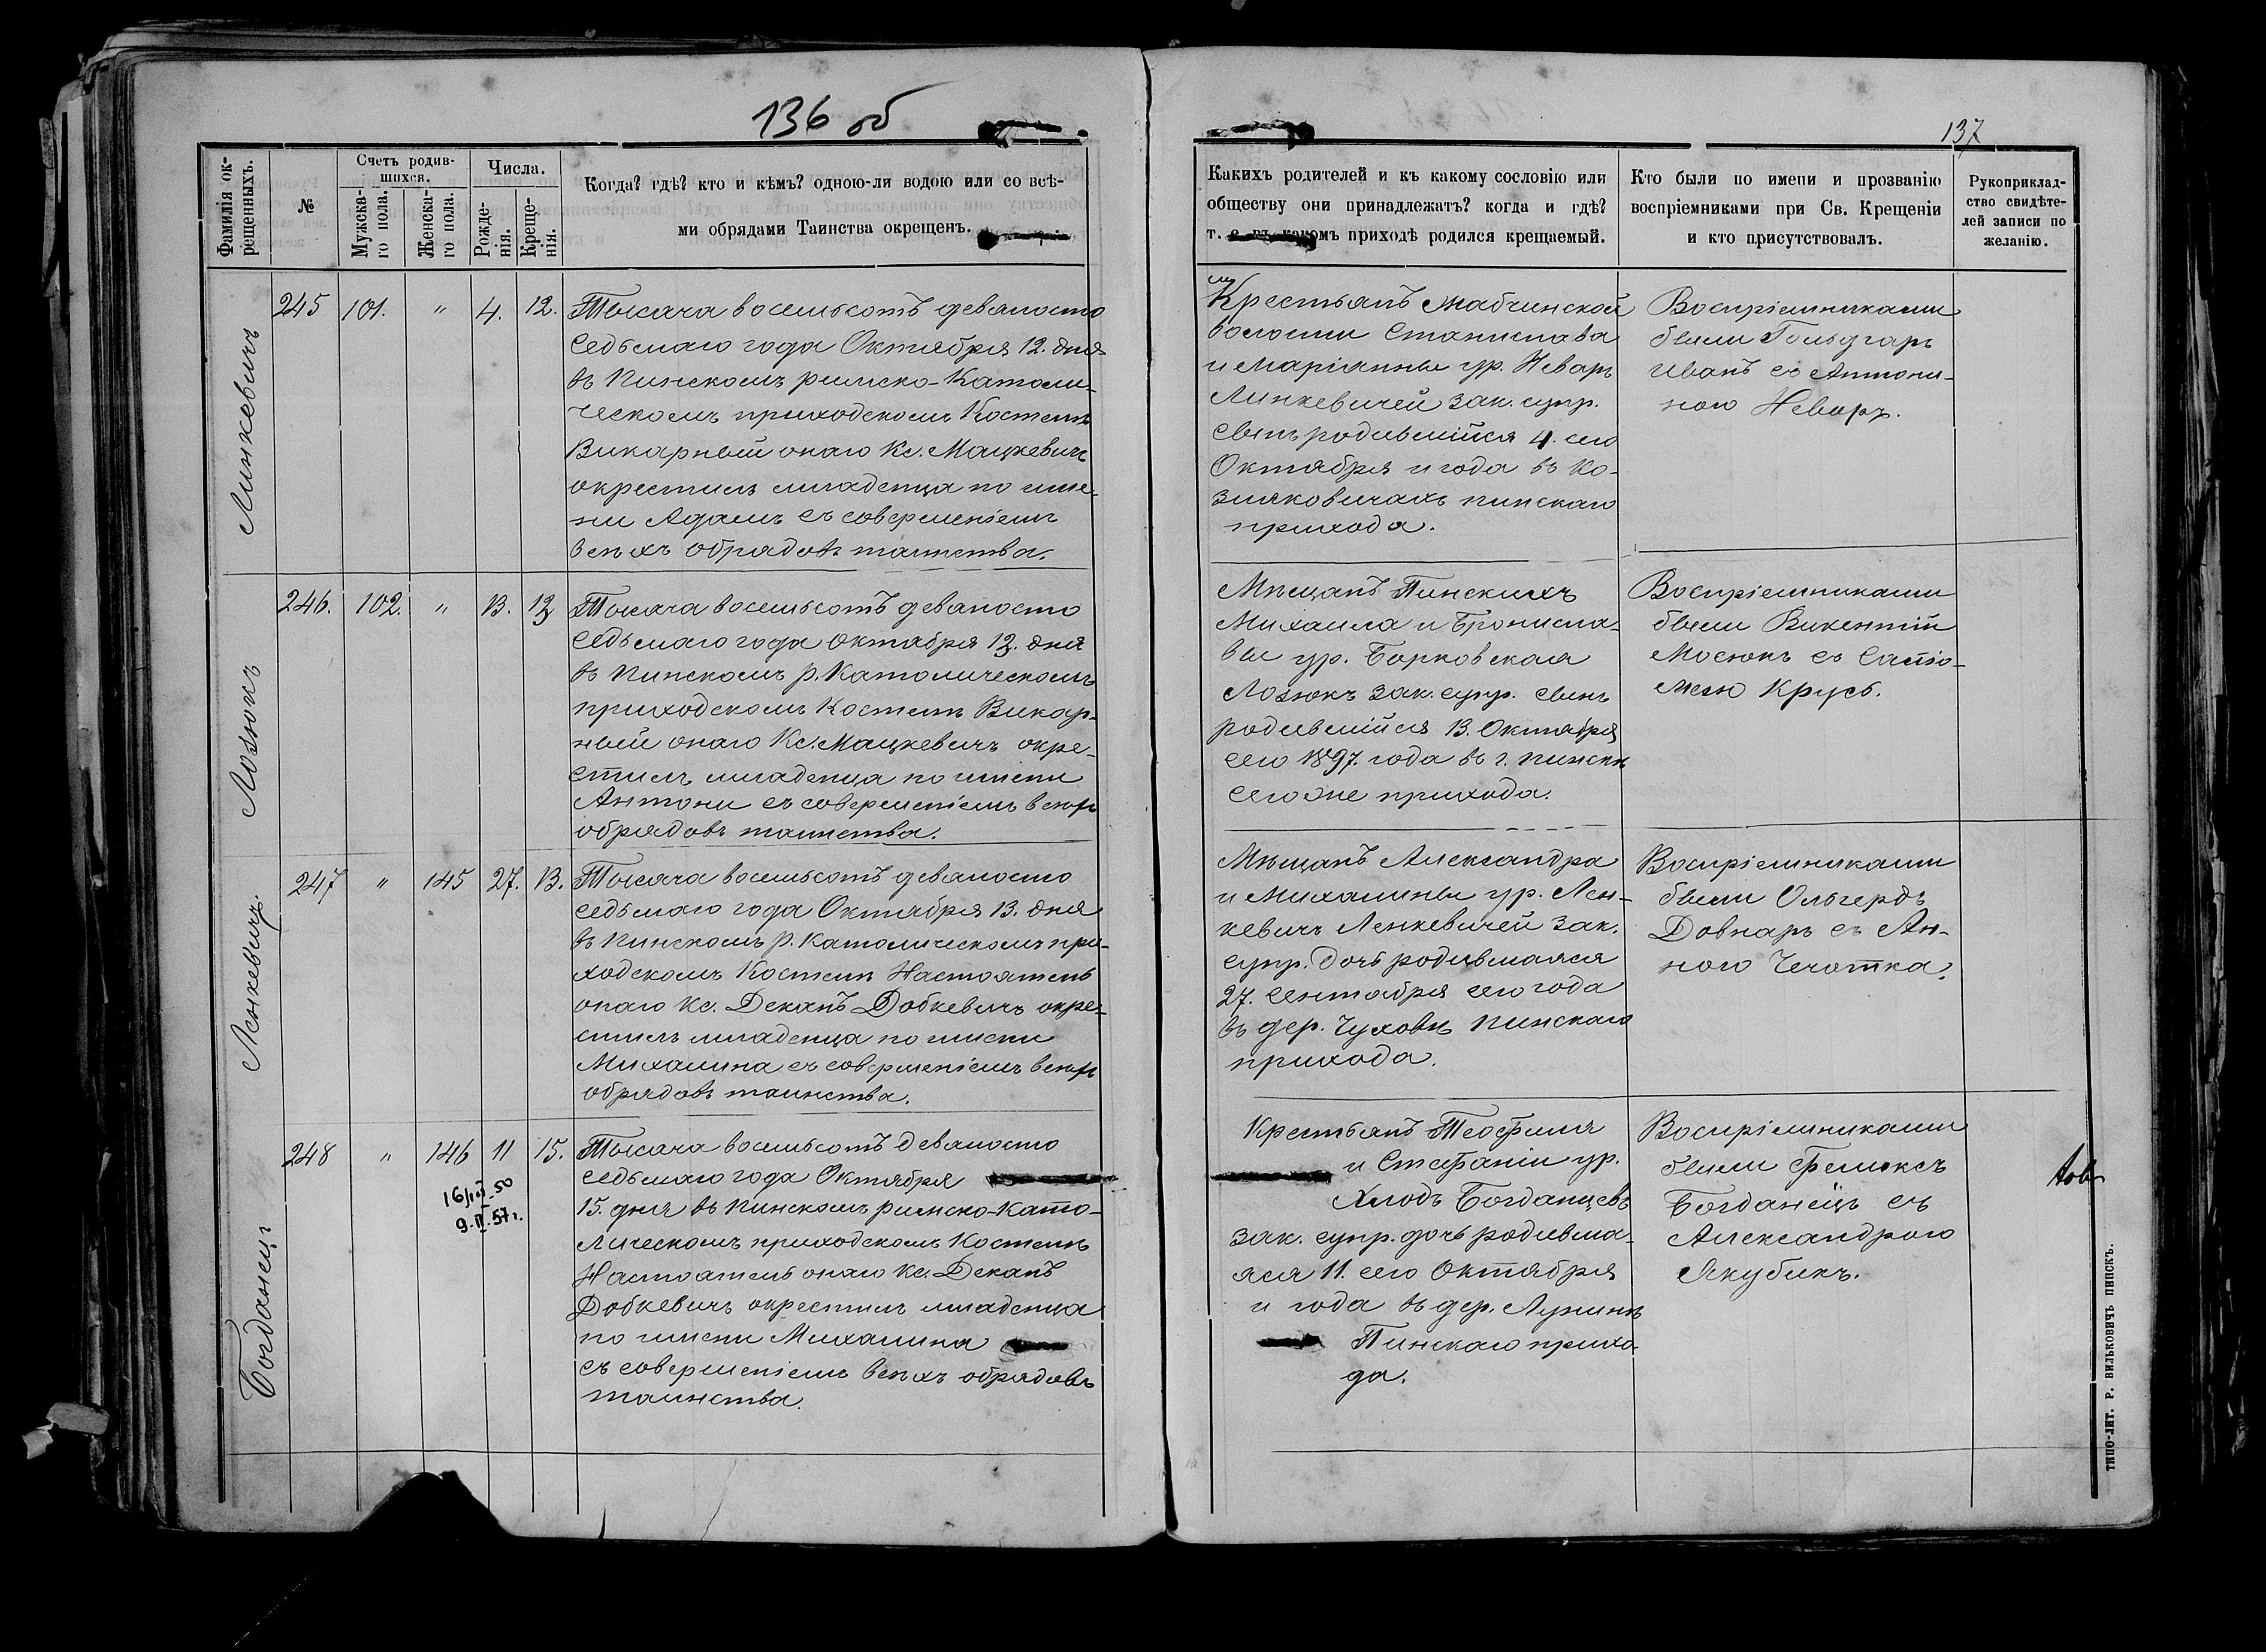 136 об
Фамилія ок-
рещенныхъ.
№
Счетъ родив-
шихся.
Мужска-
го пола.
Женска-
го пола.
Числа.
Рожде-
нія.
Креще-
нія.
Когда? гдѣ? кто и кѣмъ? одною-ли водою или со всѣ-
ми обрядами Таинства окрещенъ.
Линкевичъ
245 101. " 4. 12.
Тысяча восемьсотъ девяносто
седьмаго года Октября 12. дня
въ Пинскомъ римско-Католи-
ческомъ приходскомъ Костелѣ
Викарный онаго Кс. Мацкевичъ
окрестилъ младенца по име-
ни Адамъ съ совершеніемъ
всѣхъ обрядовъ таинства.
Лозюкъ
246. 102. " 13. 13
Тысяча восемьсотъ девяносто
седьмаго года Октября 13. дня
въ Пинскомъ р. Католическомъ
приходскомъ Костелѣ Викар-
ный онаго Кс. Мацкевичъ окре-
стилъ младенца по имени
Антони съ совершеніемъ всѣхъ
обрядовъ таинства.
Ленкевичъ.
247 " 145 27. 13.
Тысяча восемьсотъ девяносто
седьмаго года Октября 13. дня
въ Пинскомъ р. Католическомъ при-
ходскомъ Костелѣ Настоятель
онаго Кс. Деканъ Добкевичъ окре-
стилъ младенца по имени
Михалина съ совершеніемъ всѣхъ
обрядовъ таинства.
Богданецъ
248 " 146 11 15.
9.II.57г.
Тысяча восемьсотъ девяносто
седьмаго года Октября
15. дня въ Пинскомъ римско-като-
лическомъ приходскомъ Костелѣ
Настоятель онаго Кс. Деканъ
Добкевичъ окрестилъ младенца
по имени Михалина
съ совершеніемъ всѣхъ обрядовъ
таинства.
137
Какихъ родителей и къ какому сословію или
обществу они принадлежатъ? когда и гдѣ?
т. е. въ какомъ приходѣ родился крещаемый.
Кто были по имени и прозванію
воспріемниками при Св. Крещеніи
и кто присутствовалъ.
Рукоприклад-
ство свидѣте-
лей записи по
желанію.
Крестьянъ Жабчинской
волости Станислава
и Маріянны ур. Неваръ
Линкевичей зак. супр.
сынъ родившійся 4. сего
Октября и года въ Ко-
зляковичахъ пинскаго
прихода.
Воспріемниками
были Гольдгаръ
Иванъ съ Антони-
ною Неваръ.
Мѣщанъ Пинскихъ
Михаила и Бронисла-
вы ур. Борковская
Лозюкъ зак. супр. сынъ
родившійся 13. Октября
сего 1897. года въ г. Пинскѣ
сегоже прихода.
Воспріемниками
были Викентій
Мосюкъ съ Сало-
меею Крусь.
Мѣщанъ Александра
и Михалины ур. Лен-
кевичъ Ленкевичей зак.
супр. дочь родившаяся
27. Сентября сего года
въ дер. Чуховѣ Пинскаго
прихода.
Воспріемниками
были Ольгердъ
Довнаръ съ Ан-
ною Чечотка.
Крестьянъ Теофиля
и Стефаніи ур.
Хлодъ Богданцевъ
зак. супр. дочь родивша-
яся 11. сего Октября
и года въ дер. Лунинѣ
Пинскаго прихо-
да.
Воспріемниками
были Феликсъ
Богданецъ съ
Александрою
Якубикъ.
ТИПО-ЛИТ. Р. ВИЛЬКОВИЧЪ ПИНСКЪ.